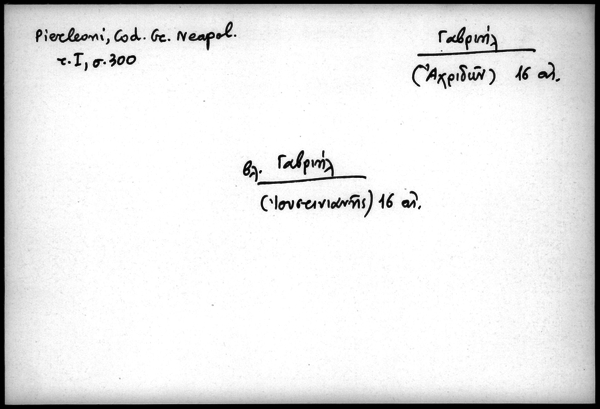 Pierleoni, Cod. Gr. Neapol.
τ. I, σ. 300
Γαβριήλ
(Ἀχριδῶν) 16 αἰ.
βλ. Γαβριήλ
(Ἰουστινιανῆς) 16 αἰ.